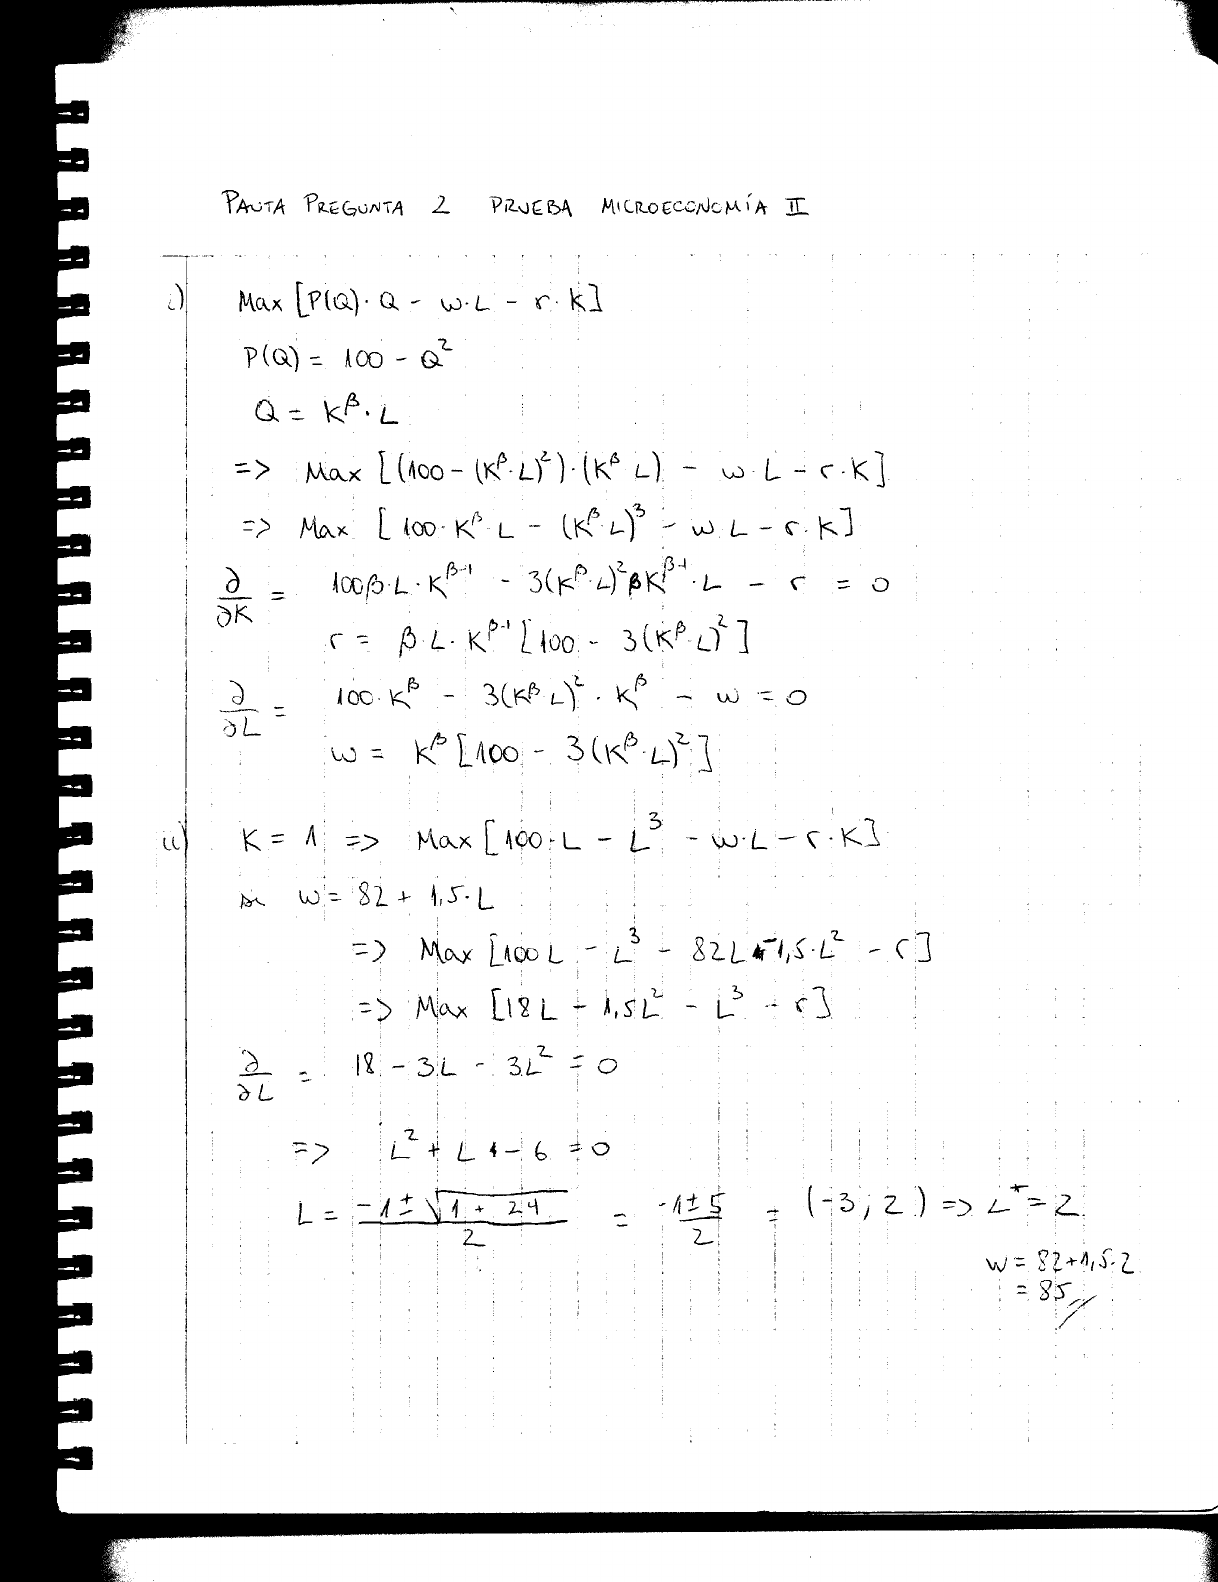 PAUTA PREGUNTA 2 PRUEBA MICROECONOMÍA II
i) Max [P(Q)·Q - w·L - r·K]
P(Q) = 100 - Q²
Q = K^β·L
=> Max [(100 - (K^β·L)²)·(K^β L) - w·L - r·K]
=> Max [100·K^β·L - (K^β·L)³ - w·L - r·K]
∂/∂K = 100β·L·K^(β-1) - 3(K^β·L)²βK^(β-1)·L - r = 0
r = β·L·K^(β-1) [100 - 3(K^β·L)²]
∂/∂L = 100·K^β - 3(K^β·L)²·K^β - w = 0
w = K^β [100 - 3(K^β·L)²]
ii) K = 1 => Max [100·L - L³ - w·L - r·K]
si w = 82 + 1,5·L
=> Max [100L - L³ - 82L - 1,5·L² - r]
=> Max [18L - 1,5L² - L³ - r]
∂/∂L = 18 - 3L - 3L² = 0
=> L² + L - 6 = 0
L = (-1 ± √(1 + 24))/2 = (-1 ± 5)/2 = (-3; 2) => L* = 2
w = 82 + 1,5·2
= 85